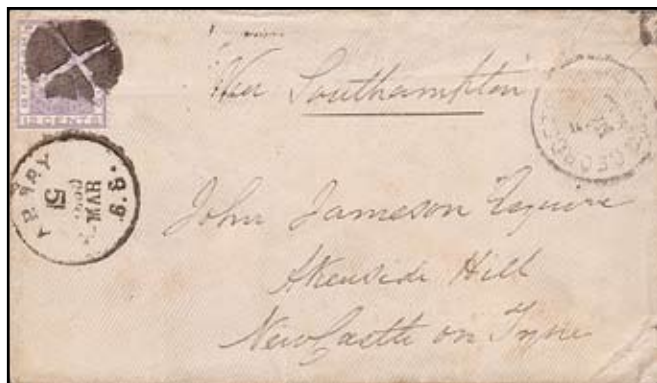 12 CENTS
Via Southampton
MAR
51
John Jameson Esquire
Akenside Hill
NewCastle on Tyne